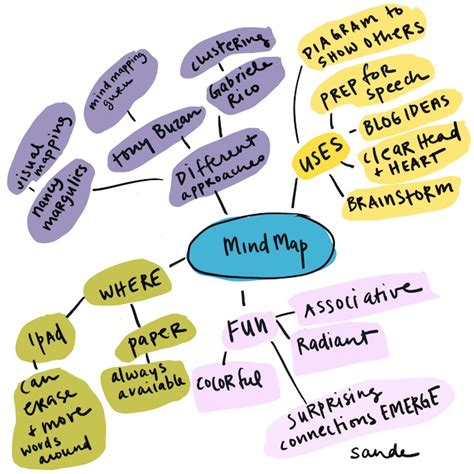 Mind Map
Different
approaches
clustering
Gabriele
Rico
Tony Buzan
mind mapping
guru
nancy
margulies
visual
mapping
USES
DIAGRAM to
SHOW OTHERS
PREP for
speech
BLOG IDEAS
clear Head
+ HEART
BRAINSTORM
WHERE
IPAD
can
erase
+ more
words
around
paper
always
available
FUN
Associative
Radiant
colorful
SURPRISING
connections EMERGE
sande